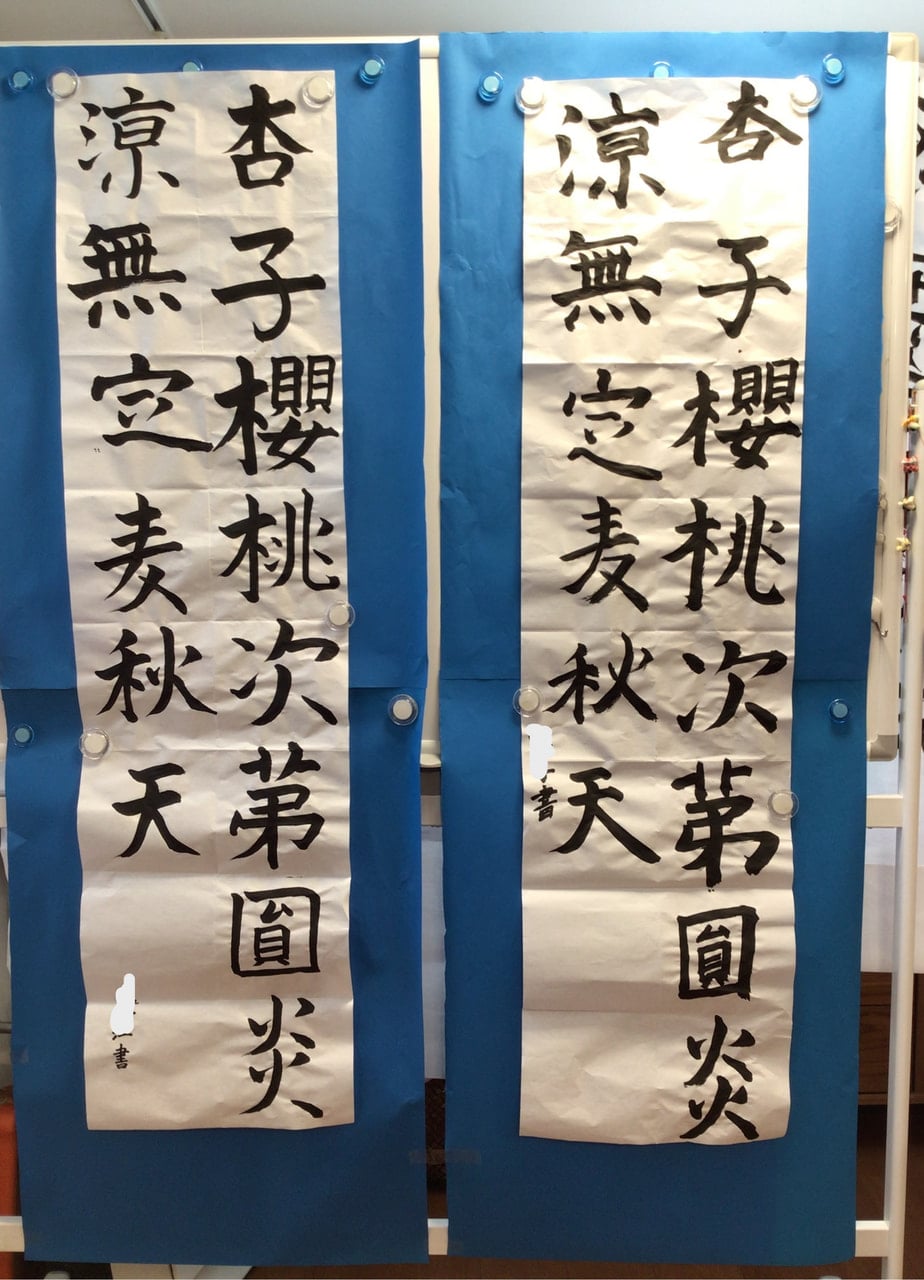 杏子櫻桃次苐圎炎
涼無定麦秋天
書
杏子櫻桃次苐圎炎
涼無定麦秋天
書